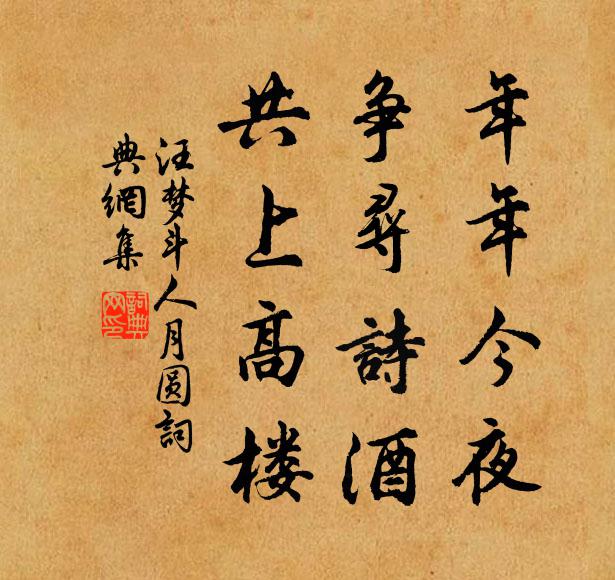 年年今夜
争尋詩酒
共上高楼
汪梦斗人月圆詞
典網集
詞典网印